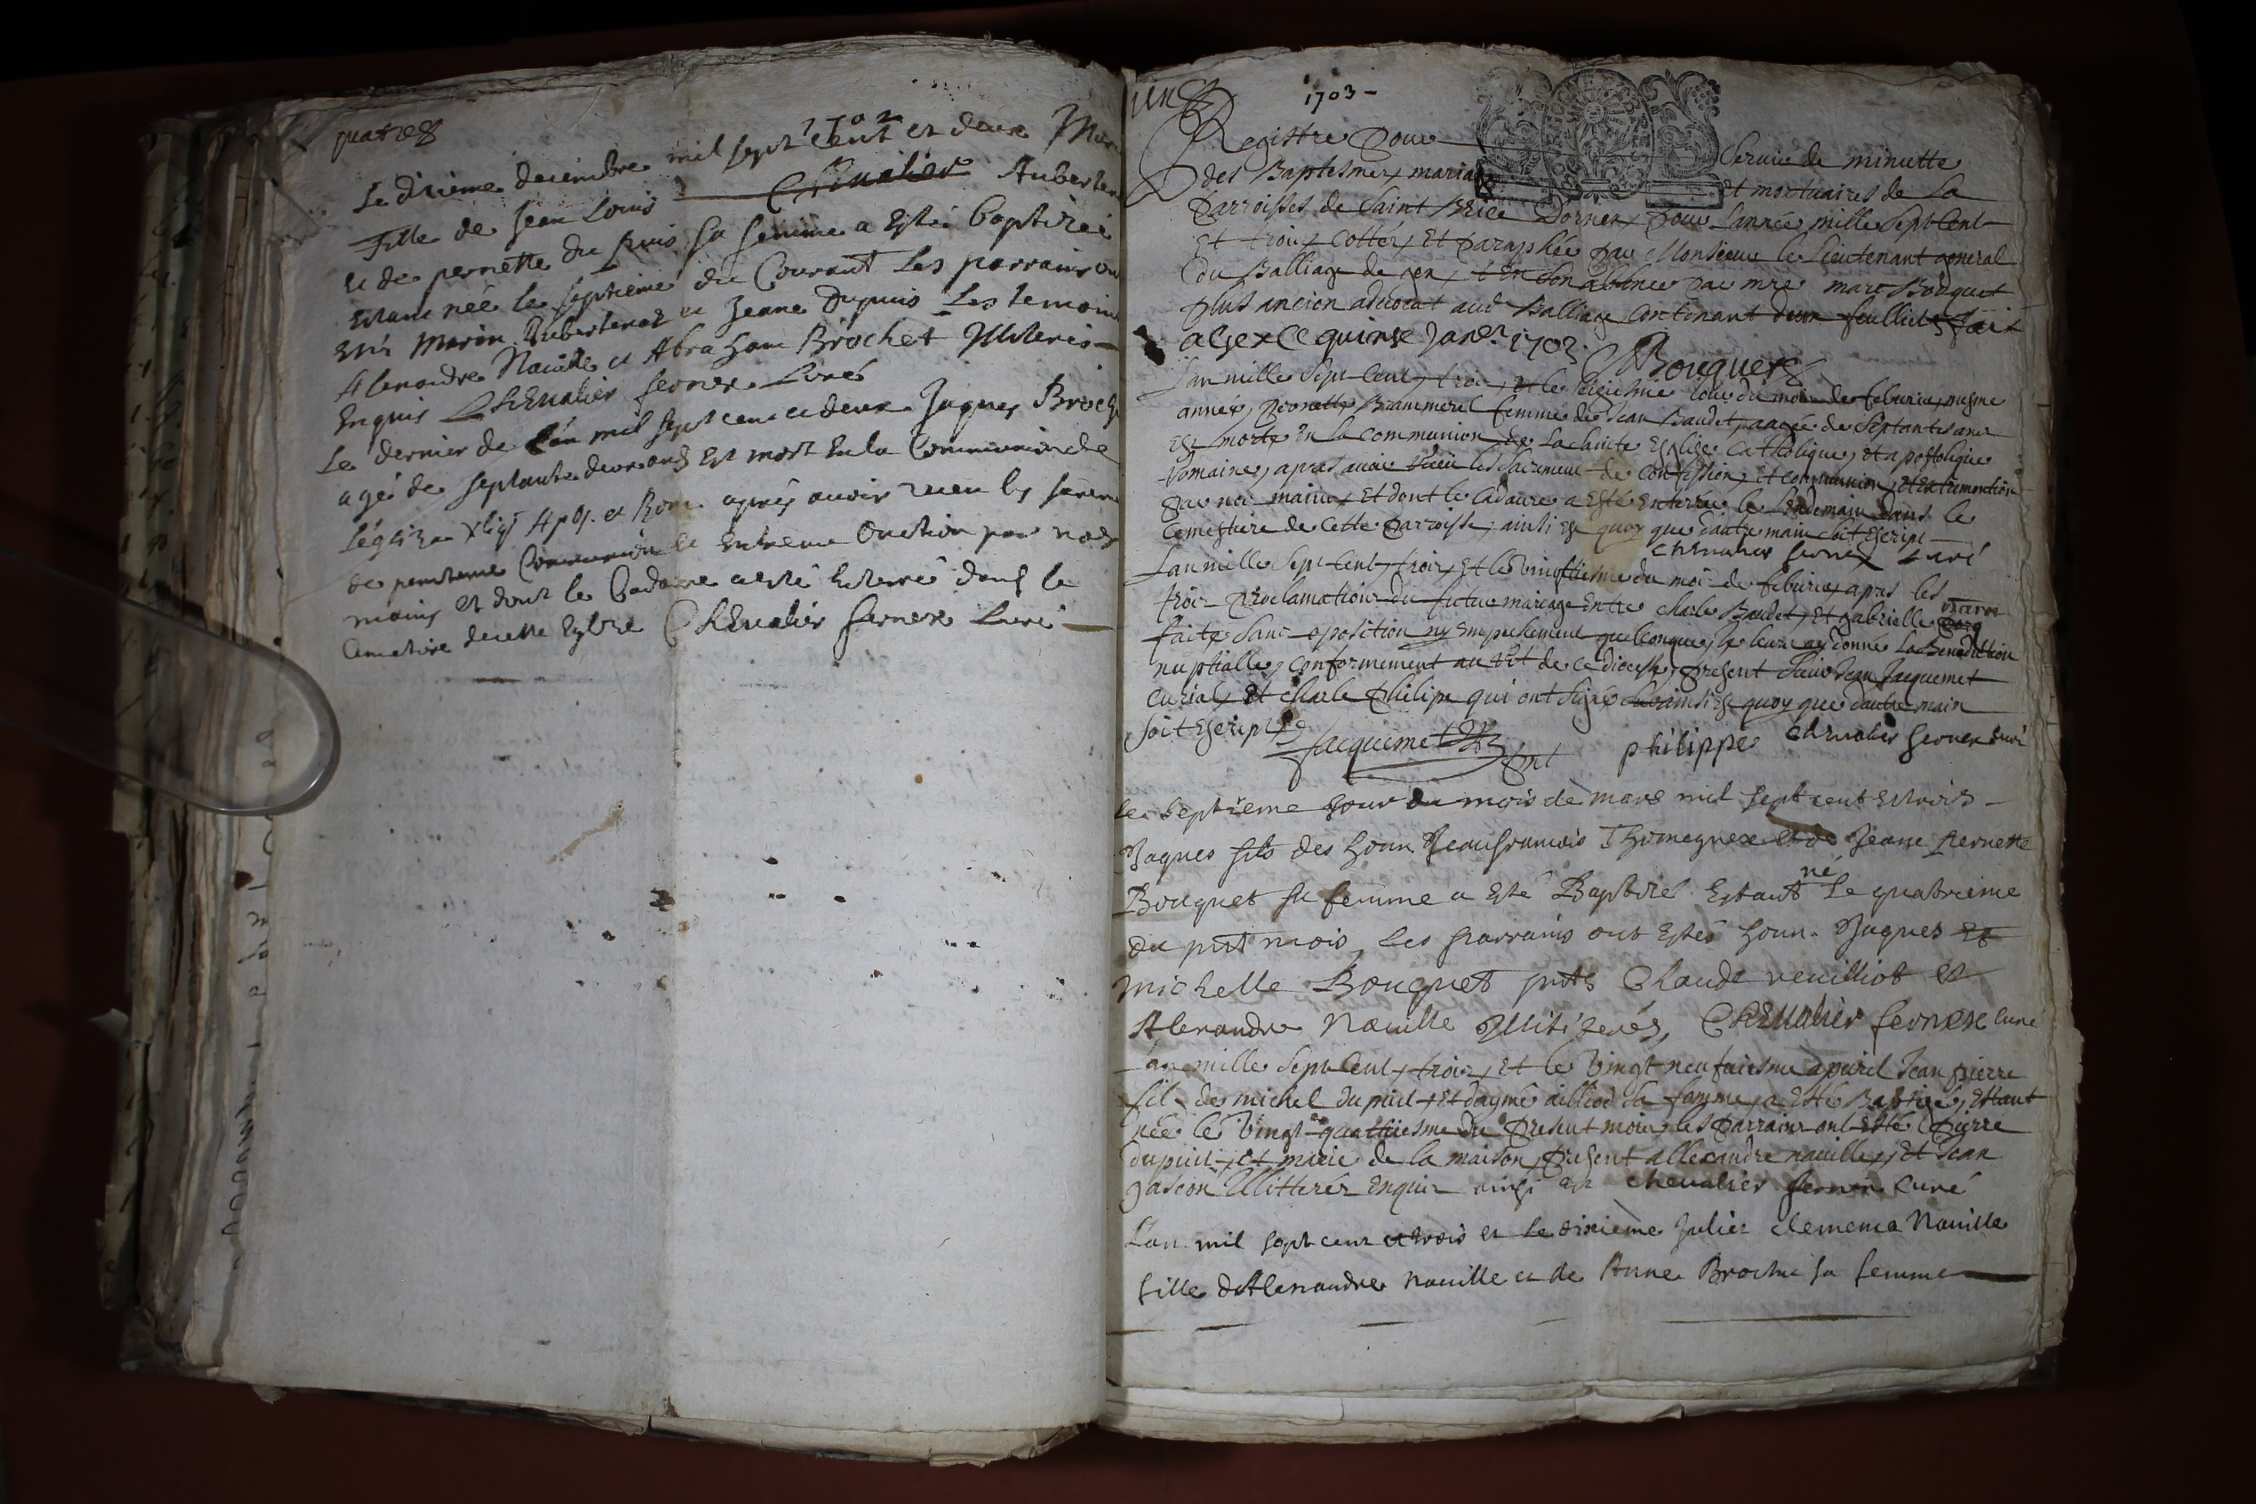 quatre
1702
Le dixieme decembre mil sept cent et deux Mar
fille de Jean Louis Chevalier Aubertena
et de pernette du puis sa femme a esté baptisée
estant née le septieme du Courant les parrains on
esté Marin Aubertenaz et Jeane Dupuis Les temoins
Alexandre Naville et Abraham Brochet Illiteris
Enquis CHEvalier fernex Curé
Le dernier de l'an mil sept cent et deux Jaques Broch
agé de septante deux ans Est mort En la Communion de
l'église Apos. et Rom. aprés avoir receu les sacrem
de penitence Communion et Extreme Onction par nos
mains et dont le Cadavre a esté Enterré dans le
Cimetiere de cette Eglise CHEvalier fernex Curé
un
1703
Registre pour Servir de minutte
des Baptesmes, mariages et mortuaires de la
Parroisse de Saint Brice Dornex, pour Lannée mille Sept Cent
Et trois, Cotté, Et paraphée par Monsieur le lieutenant general
du Balliage de gex, & En son absence par mre marc Bouquet
plus ancien advocat aud. Balliage Contenant deux feulliets, fait
a Gex le quinse Janer. 1703. Bouquet
Lan mille Sept Cent, trois, et le seiziesme Jour du mois de feburier, mesme
année, pernette Brammerel femme de Jean Baudet, aagée de Septantes ans
Est morte En la communion de la Sainte Eglise Catholique, et apostolique
Romaine, apres avoir Receu les Sacrement de Confession, et communion, et Extremontion
par nos mains, Et dont le Cadavre a Esté Enterrée le lendemain dans le
Cemestiere de Cette Parroisse, ainsi Est quoy que dautre main Soit Escript
CHEvalier fernex Curé
Lan mille Sept Cent, trois, Et le vingtiesme du mois de feburier, apres les
trois Proclamations du futur mariage Entre Charle Baudet, Et gabrielle
faite Sans oposition ny Empechement quelconque, Je leurs ay donné La Benediction
nuptialle, Conformement au de ce diocese, present Sieur Jean Jacquemet
Curial, Et Charle Philipe qui ont Signé ainsi Est quoy que dautre main
Soit Escript
Jacquemet philippe CHEvalier fernex Curé
le Septieme Jour du mois de mars mil sept cent et trois
Jaques fils des honn. Jean francois Thomegnex et de Jeane Pernette
Bouquet sa femme a Esté Baptisé Estant né le quatrieme
du pnt mois, Les parrains ont Estés honn. Jaques et
Michelle Bouquet pnts Claude veuilliot et
Alexandre Naville CHEvalier fernex curé
Lan mille Sept Cent, trois, Et le vingt neufuiesme apvril Jean pierre
fils de michel dupuit, Et daymé ailliod Sa famme, a Esté Baptisé, Estant
née le vingt quatriesme du present mois les Parrains ont Esté Pierre
dupuit, et marie de la maison, present allexandre naville, Et Jean
gascon Illitterés Enquis ainsi est chevalier fernex Curé
L'an mil sept cent et trois et le dixieme Julier clemence Naville
fille d'Alexandre Naville et de Anne Broche sa femme